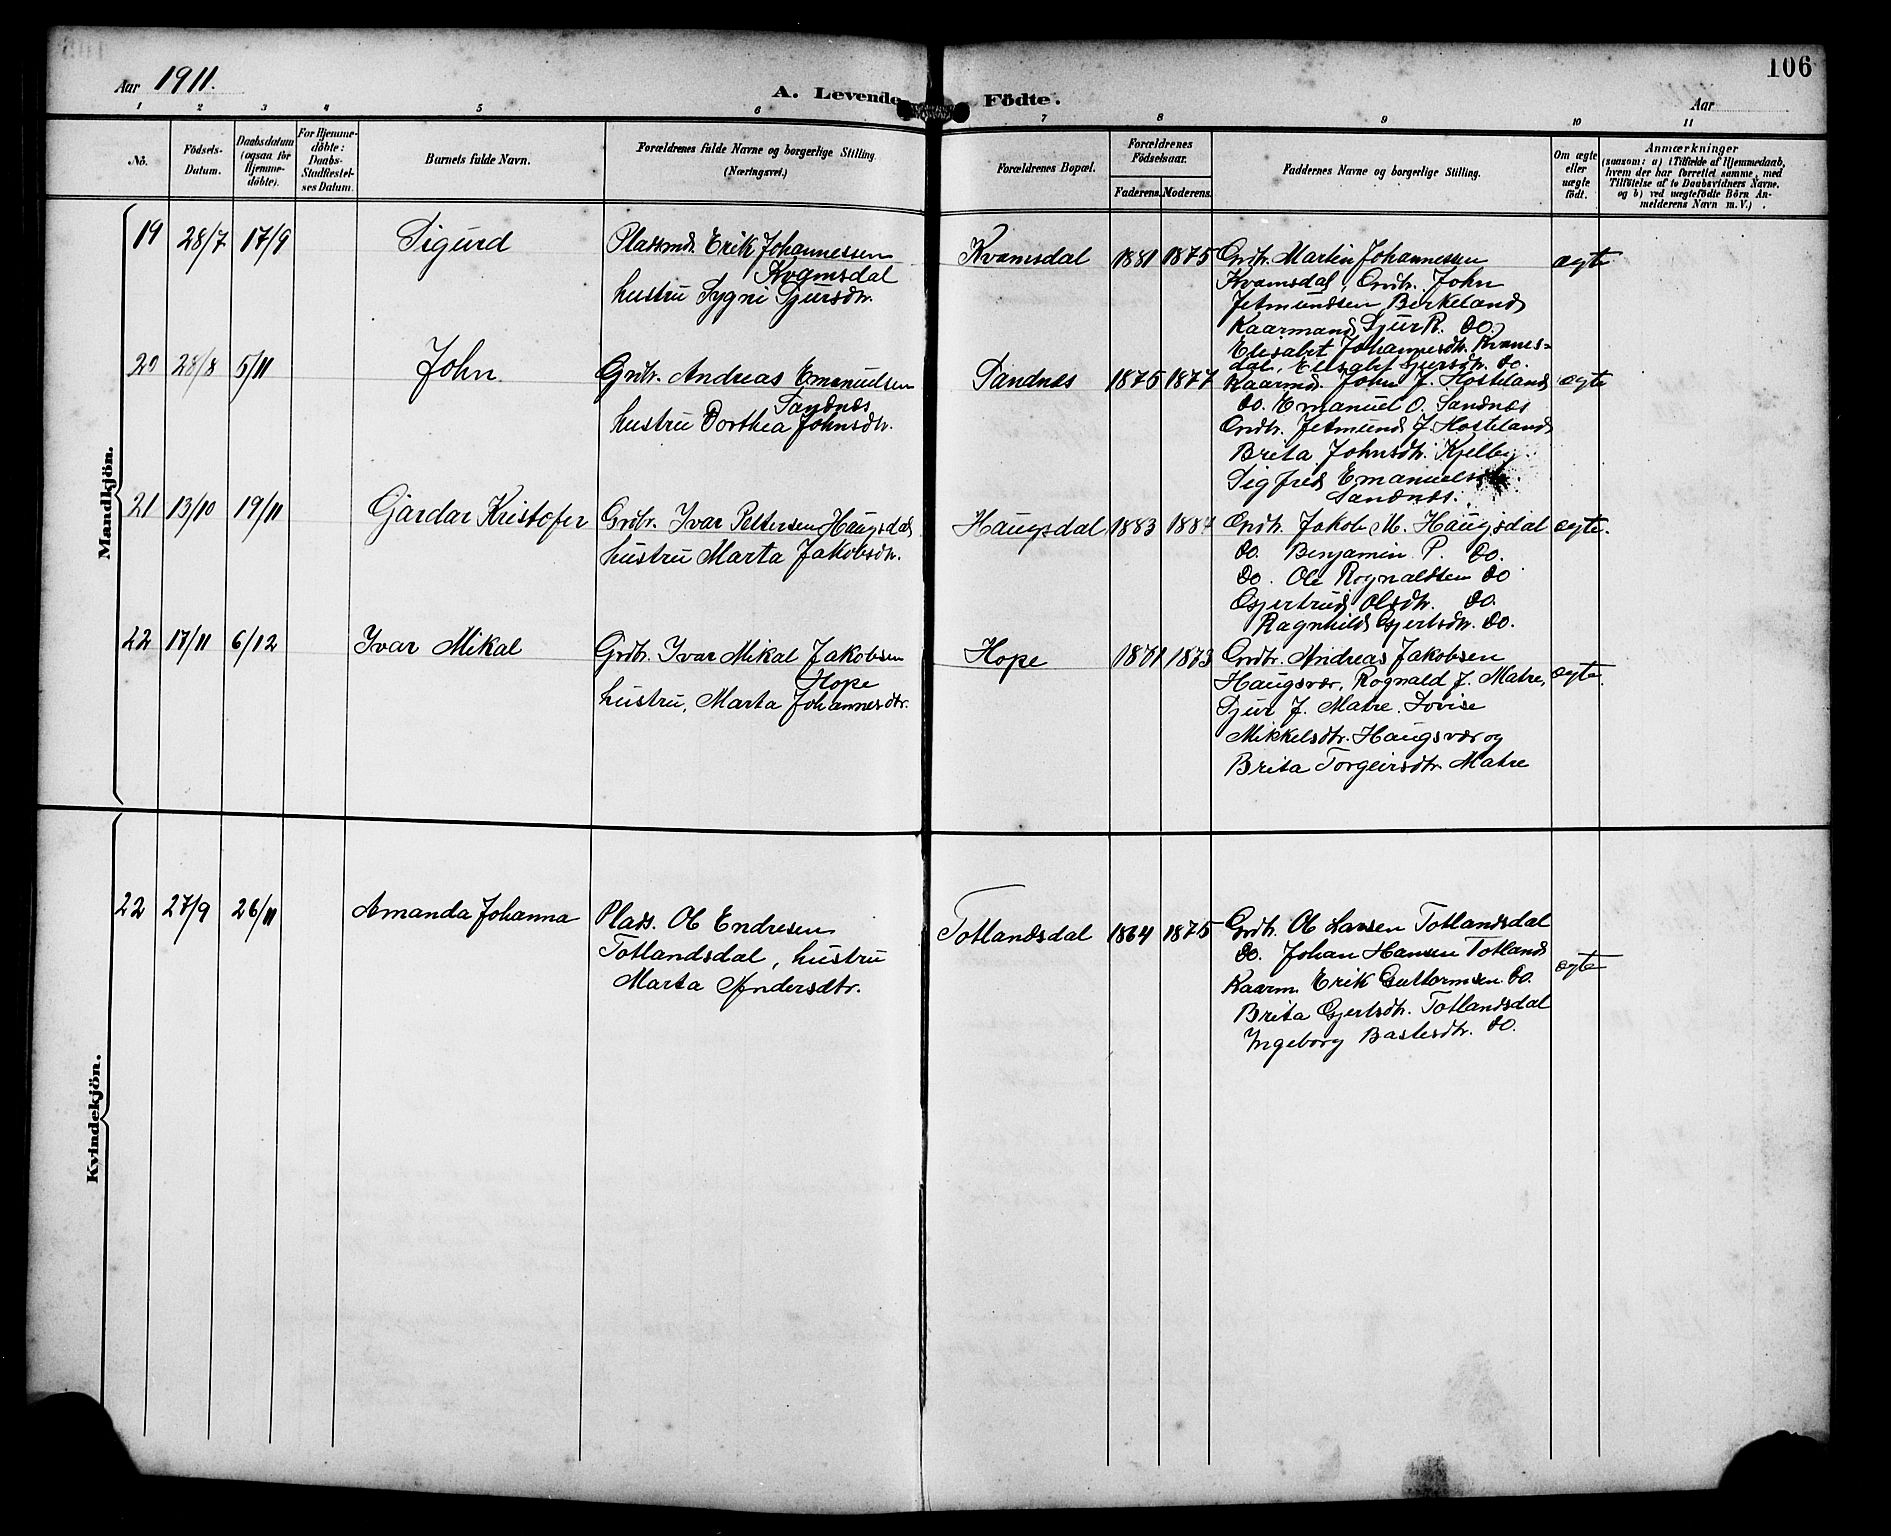 106
Aar 1911.
A. Levende Födte.
Aar
1 2 3 4 5 6 7 8 9 10 11
No.
Födsels-
Datum.
Daabsdatum
(ogsaa for
Hjemme-
döbte).
For Hjemme-
döbte:
Daabs-
Stadfæstel-
ses Datum.
Barnets fulde Navn.
Forældrenes fulde Navne og borgerlige Stilling
(Næringsvei.)
Forældrenes Bopæl.
Forældrenes
Födselsaar.
Faderens. Moderens.
Faddernes Navne og borgerlige Stilling.
Om ægte
eller
uægte
födt.
Anmærkninger
(saasom: a) i Tilfælde af Hjemmedaab,
hvem der har forrettet samme, med
Tilföielse af to Daabsvidners Navne.
og b) ved uægtefödte Börn An-
melderens Navn m. V.) .
Mandkjön.
19 28/7 17/9 Sigurd
Pladsmd. Erik Johannessen
Kvamsdal
hustru Sygni Sjursdtr.
Kvamsdal 1881 1875
Grdbr. Martin Johannessen
Kvamsdal, Grdbr. John
Jetmundsen Birkeland
Kaarmand Sjur R. do.
Elisabet Johannesdtr. Kvams-
dal, Elisabet Sjursdtr. do.
ægte
20 28/8 5/11 John
Grdbr. Andreas Emanuelsen
Sandnes
hustru Dorthea Johnsdtr.
Sandnes 1875 1877
Kaarmd. John J. Hosteland
do. Emanuel O. Sandnes
Grdbr. Jetmund J. Hosteland
Brita Johnsdtr. Kjelby
Sigfred Emanuels
Sandnes.
ægte
21 13/10 19/11 Gjardar Kristofer
Grdbr. Ivar Pettersen Haugsdal
hustru Marta Jakobsdtr.
Haugsdal 1883 1887
Grdbr. Jakob M. Haugsdal
do. Benjamin P. do.
do. Ole Rognaldsen do
Gjertrud Olsdtr. do.
Ragnhild Gjertsdtr. do.
ægte.
22 17/11 6/12 Ivar Mikal
Grdbr. Ivar Mikal Jakobsen
Hope
hustru, Marta Johannesdtr.
Hope 1871 1873
Grdbr. Andreas Jakobsen
Haugsvær, Rognald J. Matre,
Sjur J. Matre. Lovise
Mikkelsdtr. Haugsvær og
Brita Torgeirsdtr. Matre
ægte.
Kvindekjön.
22 27/9 26/11 Amanda Johanna
Plads. Ole Endresen
Totlandsdal, hustru
Marta Andersdtr.
Totlandsdal 1864 1875
Grdbr. Ole Larsen Totlandsdal
do. Johan Hansen Totland
Kaarm. Erik Guttormsen do.
Brita Gjertsdtr. Totlandsdal
Ingeborg Bastesdtr. do.
ægte